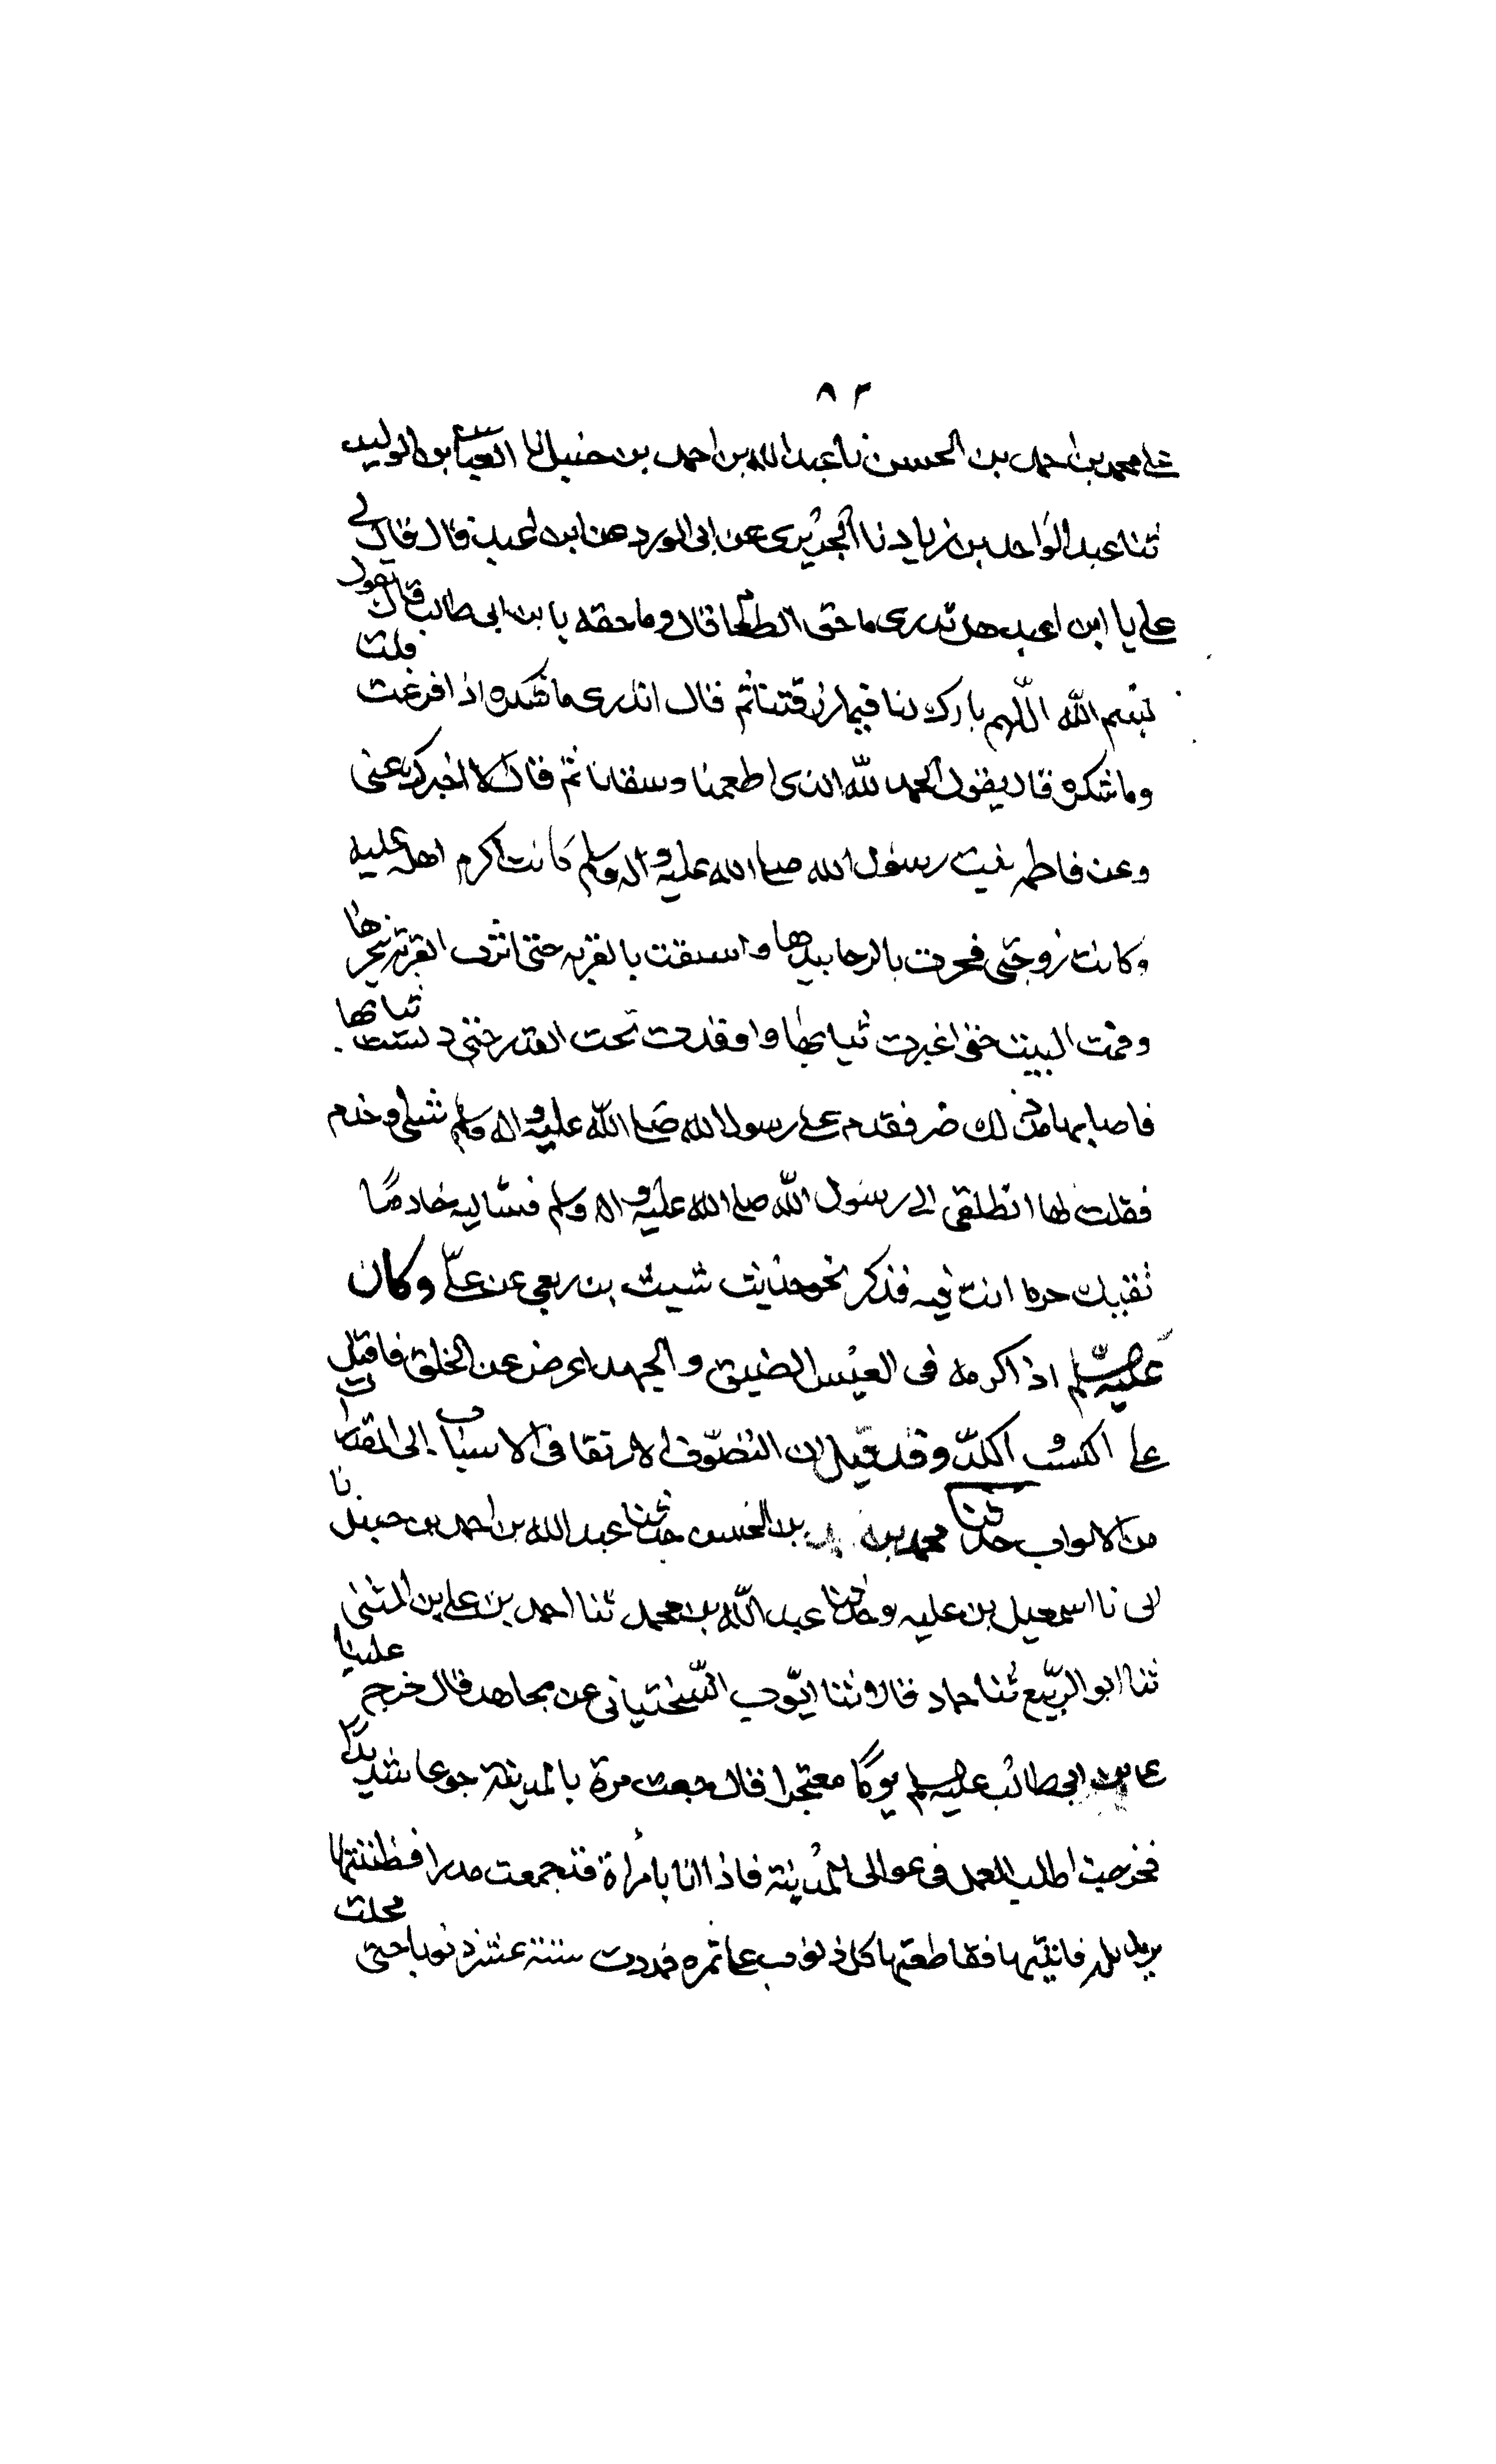 ٨٣
على محمد بن احمد بن الحسن نا عبد الله بن احمد بن حنبل انا العباس بن الوليد
ثنا عبد الواحد بن زياد نا الجريرى عن ابى الورد عن ابن اعبد قال قال لى
على يا ابن اعبد هل تدرى ما حق الطعام قال وما حقه يا بن ابى طالب قال تقول
بسم الله اللهم بارك لنا فيما رزقتنا ثم قال اتدرى ما شكره اذا فرغت قلت
وما شكره قال يقول الحمد لله الذى اطعمنا وسقانا ثم قال الا اخبرك عنى
وعن فاطمه بنت رسول الله صلى الله عليه واله وسلم كانت اكرم اهله عليه
وكانت زوجتى فجرت بالرحا بيدها واستقت بالقربه حتى اثرت القربة بنحرها
وقمت البيت حتى اغبرت ثيابها واوقدت تحت القدر حتى دنست ثيابها
فاصابها من ذلك ضر فقدم على رسول الله صلى الله عليه واله وسلم سبى وخدم
فقلت لها انطلقى الى رسول الله صلى الله عليه واله وسلم فسئاليه خادمًا
نقيك حرما انت فيه فذكر نحو حديث شبث بن ربعى عن على وكان
عليه السلم اذا كرمه فى العيش الضيق والجهد اعرض عن الخلق فاقبل
على الكسب والكد وقد قيل ان التصوف الارتقا فى الاسباب الى المقدرات
من الابواب حدثنا محمد بن بن الحسن حدثنا عبد الله بن احمد بن حنبل نا
ابى نا اسمعيل بن عليه وحدثنا عبد الله بن محمد ثنا احمد بن على بن المثنى
ثنا ابو الربيع ثنا حماد قالا ثنا ايوب السختيانى عن مجاهد قال خرج علينا
على بن ابى طالب عليه السلم يومًا معتجرا قال جعت مرة بالمدينة جوعا شديدًا
فخرجت اطلب العمل فى عوالى المدينة فاذا انا بامرأة قد جمعت مدرا فظننتها
تريد بله فاتيتها فقاطعتها كل ذنوب على تمره فمددت ستة عشر ذنوبا حتى مجلت